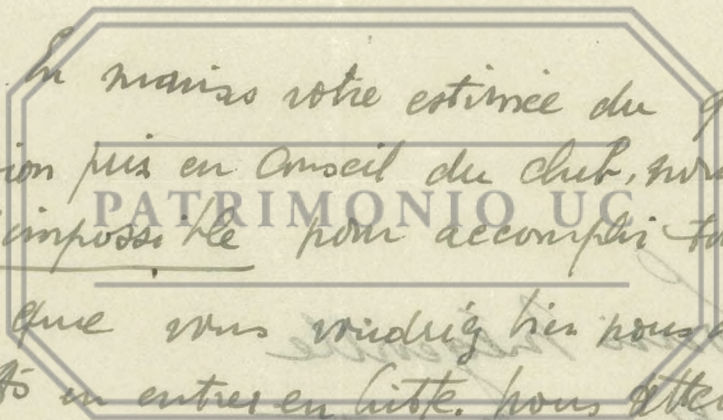 En mains votre estimée du
ion pris en Conseil du club, nou
PATRIMONIO UC
impossible pour accompli
que vous voudriez bien nous
en entrer en lutte. nous